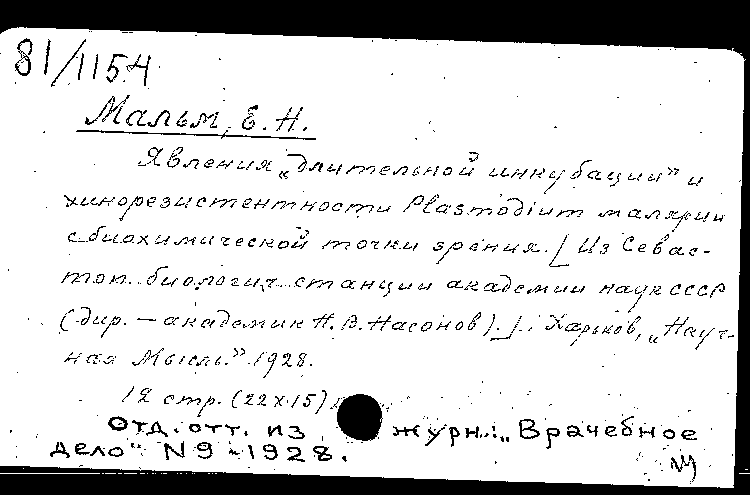 81/1154
Мальм, Е. Н.
Явления „длительной инкубации" и
хинорезистентности Plasmodium малярии
с биохимической точки зрения. [Из Севас-
топ. биологич. станции академии наук СССР
(дир. – академик Н. В. Насонов).]. Харьков, „Науч-
ная Мысль." 1928.
12 стр. (22х15)
Отд. отт. из журн.: „Врачебное
дело" N 9 - 1928.